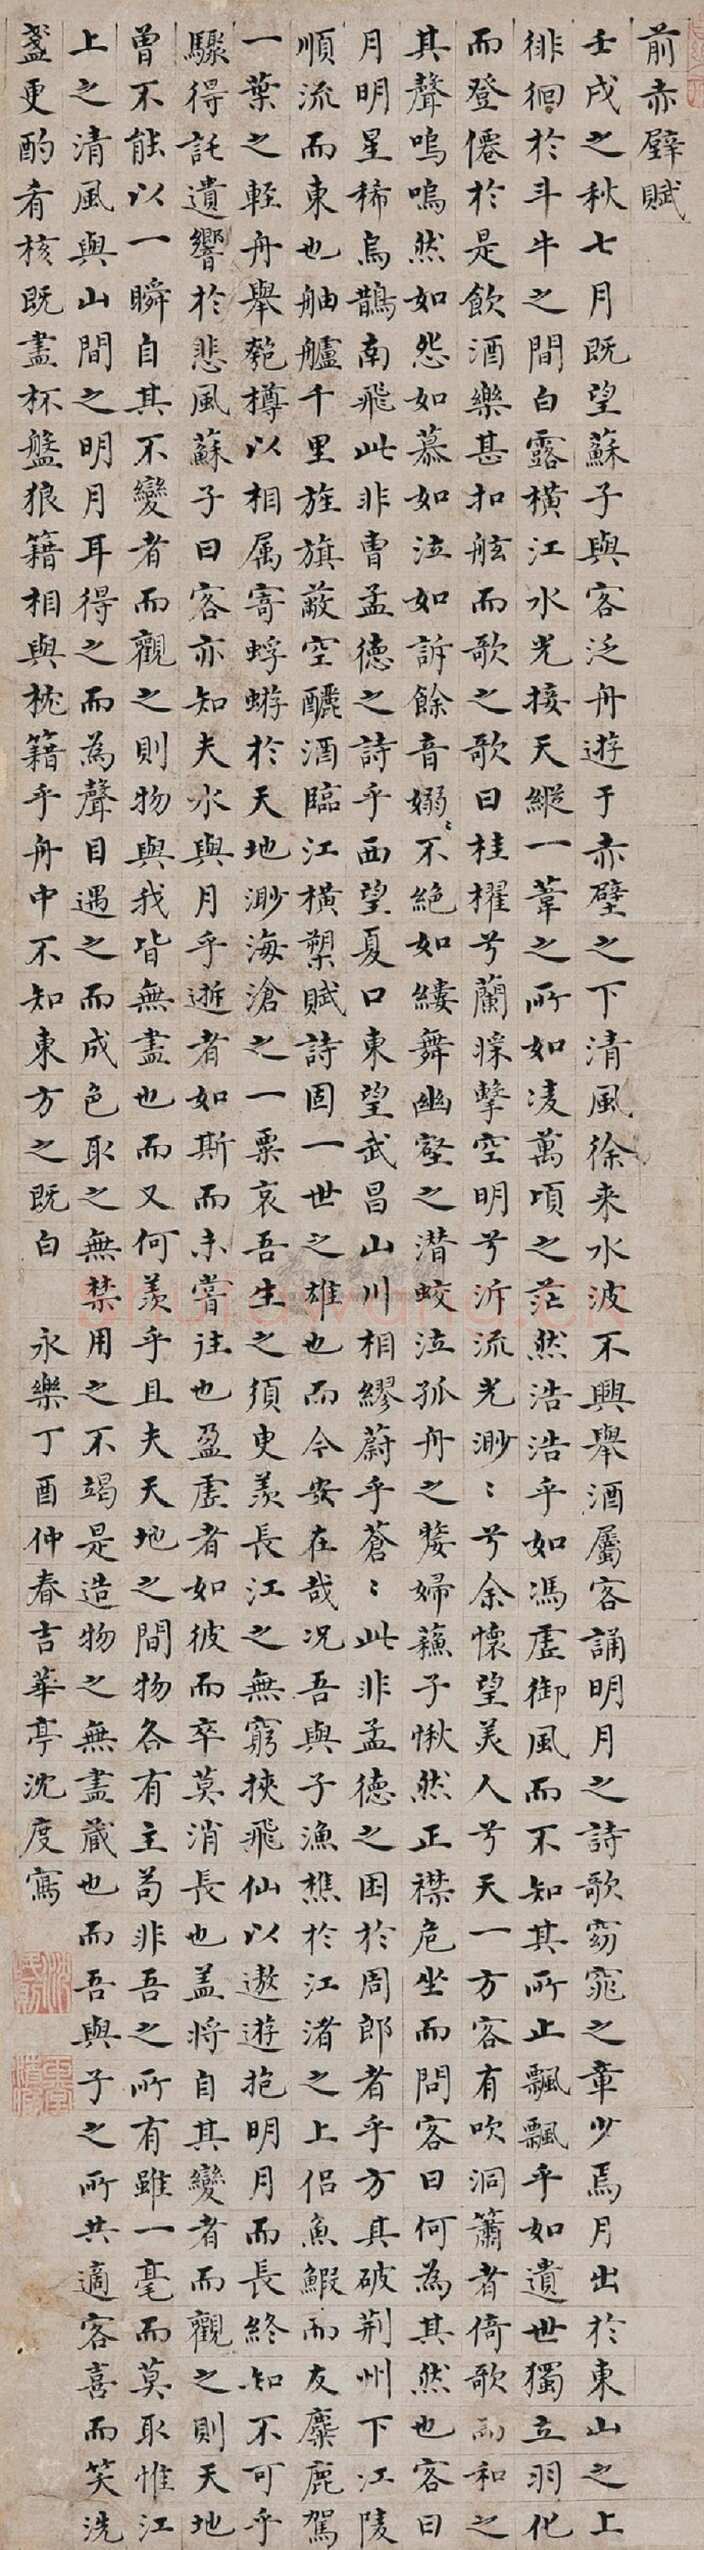 前赤壁賦
壬戌之秋七月既望蘇子與客泛舟遊于赤壁之下清風徐来水波不興舉酒屬客誦明月之詩歌窈窕之章少焉月出於東山之上
徘徊於斗牛之間白露橫江水光接天縱一葦之所如凌萬頃之茫然浩浩乎如馮虛御風而不知其所止飄飄乎如遺世獨立羽化
而登僊於是飲酒樂甚扣舷而歌之歌曰桂櫂兮蘭槳擊空明兮泝流光渺〻兮余懷望美人兮天一方客有吹洞簫者倚歌而和之
其聲嗚嗚然如怨如慕如泣如訴餘音嫋〻不絕如縷舞幽壑之潛蛟泣孤舟之嫠婦蘓子愀然正襟危坐而問客曰何為其然也客曰
月明星稀烏鵲南飛此非曹孟德之詩乎西望夏口東望武昌山川相繆蔚乎蒼〻此非孟德之困於周郎者乎方其破荆州下江陵
順流而東也舳艫千里旌旗蔽空釃酒臨江橫槊賦詩固一世之雄也而今安在哉况吾與子漁樵於江渚之上侶魚鰕而友麋鹿駕
一葉之輕舟舉匏樽以相属寄蜉蝣於天地渺海滄之一粟哀吾生之須臾羨長江之無窮挾飛仙以遨遊抱明月而長終知不可乎
驟得託遺響於悲風蘇子曰客亦知夫水與月乎逝者如斯而未嘗往也盈虛者如彼而卒莫消長也盖將自其變者而觀之則天地
曾不能以一瞬自其不變者而觀之則物與我皆無盡也而又何羨乎且夫天地之間物各有主苟非吾之所有雖一毫而莫取惟江
上之清風與山間之明月耳得之而為聲目遇之而成色取之無禁用之不竭是造物之無盡藏也而吾與子之所共適客喜而笑洗
盞更酌肴核既盡杯盤狼籍相與枕籍乎舟中不知東方之既白 永樂丁酉仲春吉華亭沈度寫